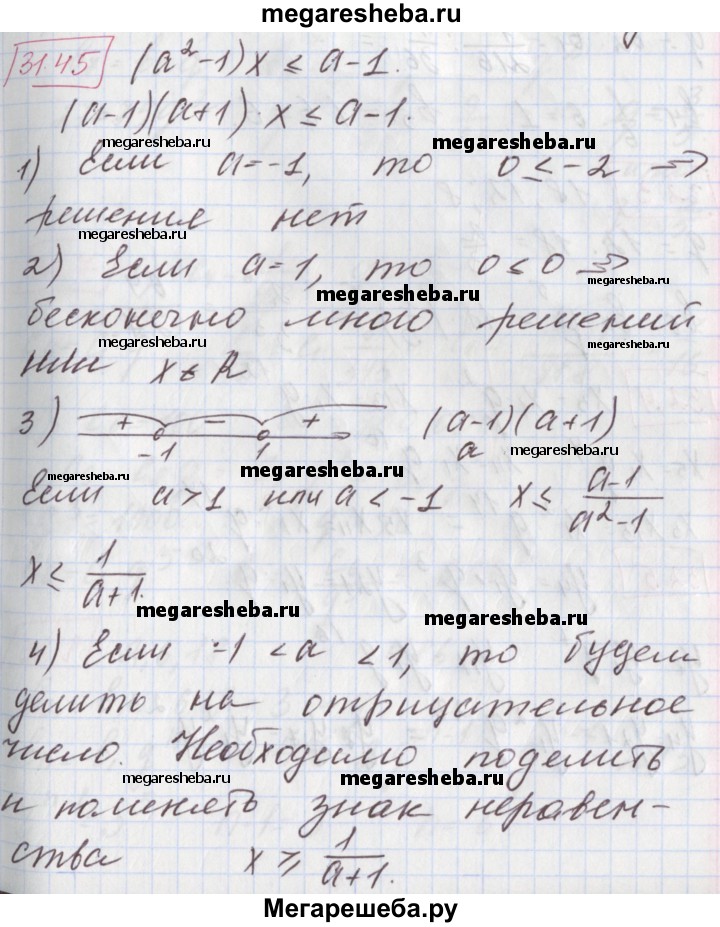 megaresheba.ru
31.45 (a²-1)x ≤ a-1.
(a-1)(a+1)·x ≤ a-1.
megaresheba.ru megaresheba.ru
1) Если a=-1, то 0 ≤ -2 ⇒
решения нет
megaresheba.ru
2) Если a=1, то 0 ≤ 0 ⇒
megaresheba.ru megaresheba.ru
бесконечно много решений
megaresheba.ru megaresheba.ru
или x ∈ R
3) + - + (a-1)(a+1)
-1 1 a megaresheba.ru
megaresheba.ru megaresheba.ru
Если a>1 или a < -1 x ≤ (a-1)/(a²-1)
x ≤ 1/(a+1).
megaresheba.ru megaresheba.ru
4) Если -1 < a < 1, то будем
делить на отрицательное
число. Необходимо поделить
megaresheba.ru megaresheba.ru
и поменять знак неравен-
ства x ≥ 1/(a+1).
Мегарешеба.ру